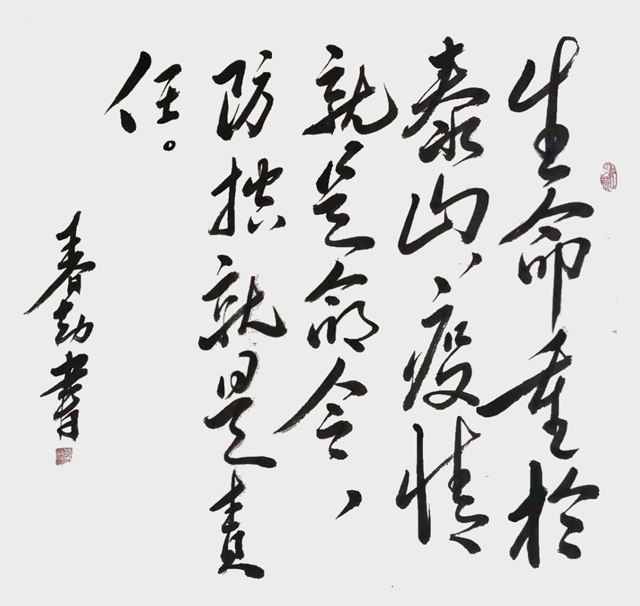 生命重於
泰山、疫情
就是命令、
防控就是責
任。
春 書